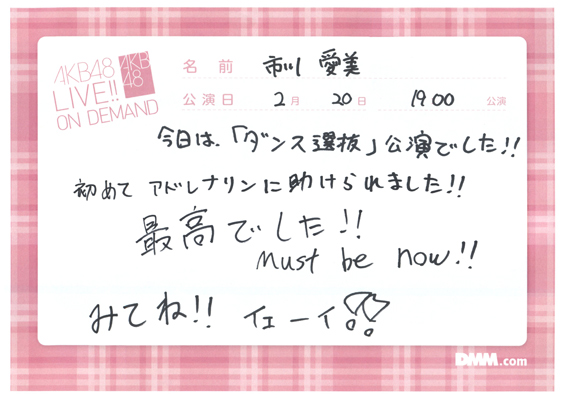 AKB48
LIVE!!
ON DEMAND
AKB
48
名前 市川 愛美
公演日 2月 20日 19:00 公演
今日は、「ダンス選抜」公演でした!!
初めて アドレナリンに助けられました!!
最高でした!!
Must be now!!
みてね!! イェーイ!!
DMM.com